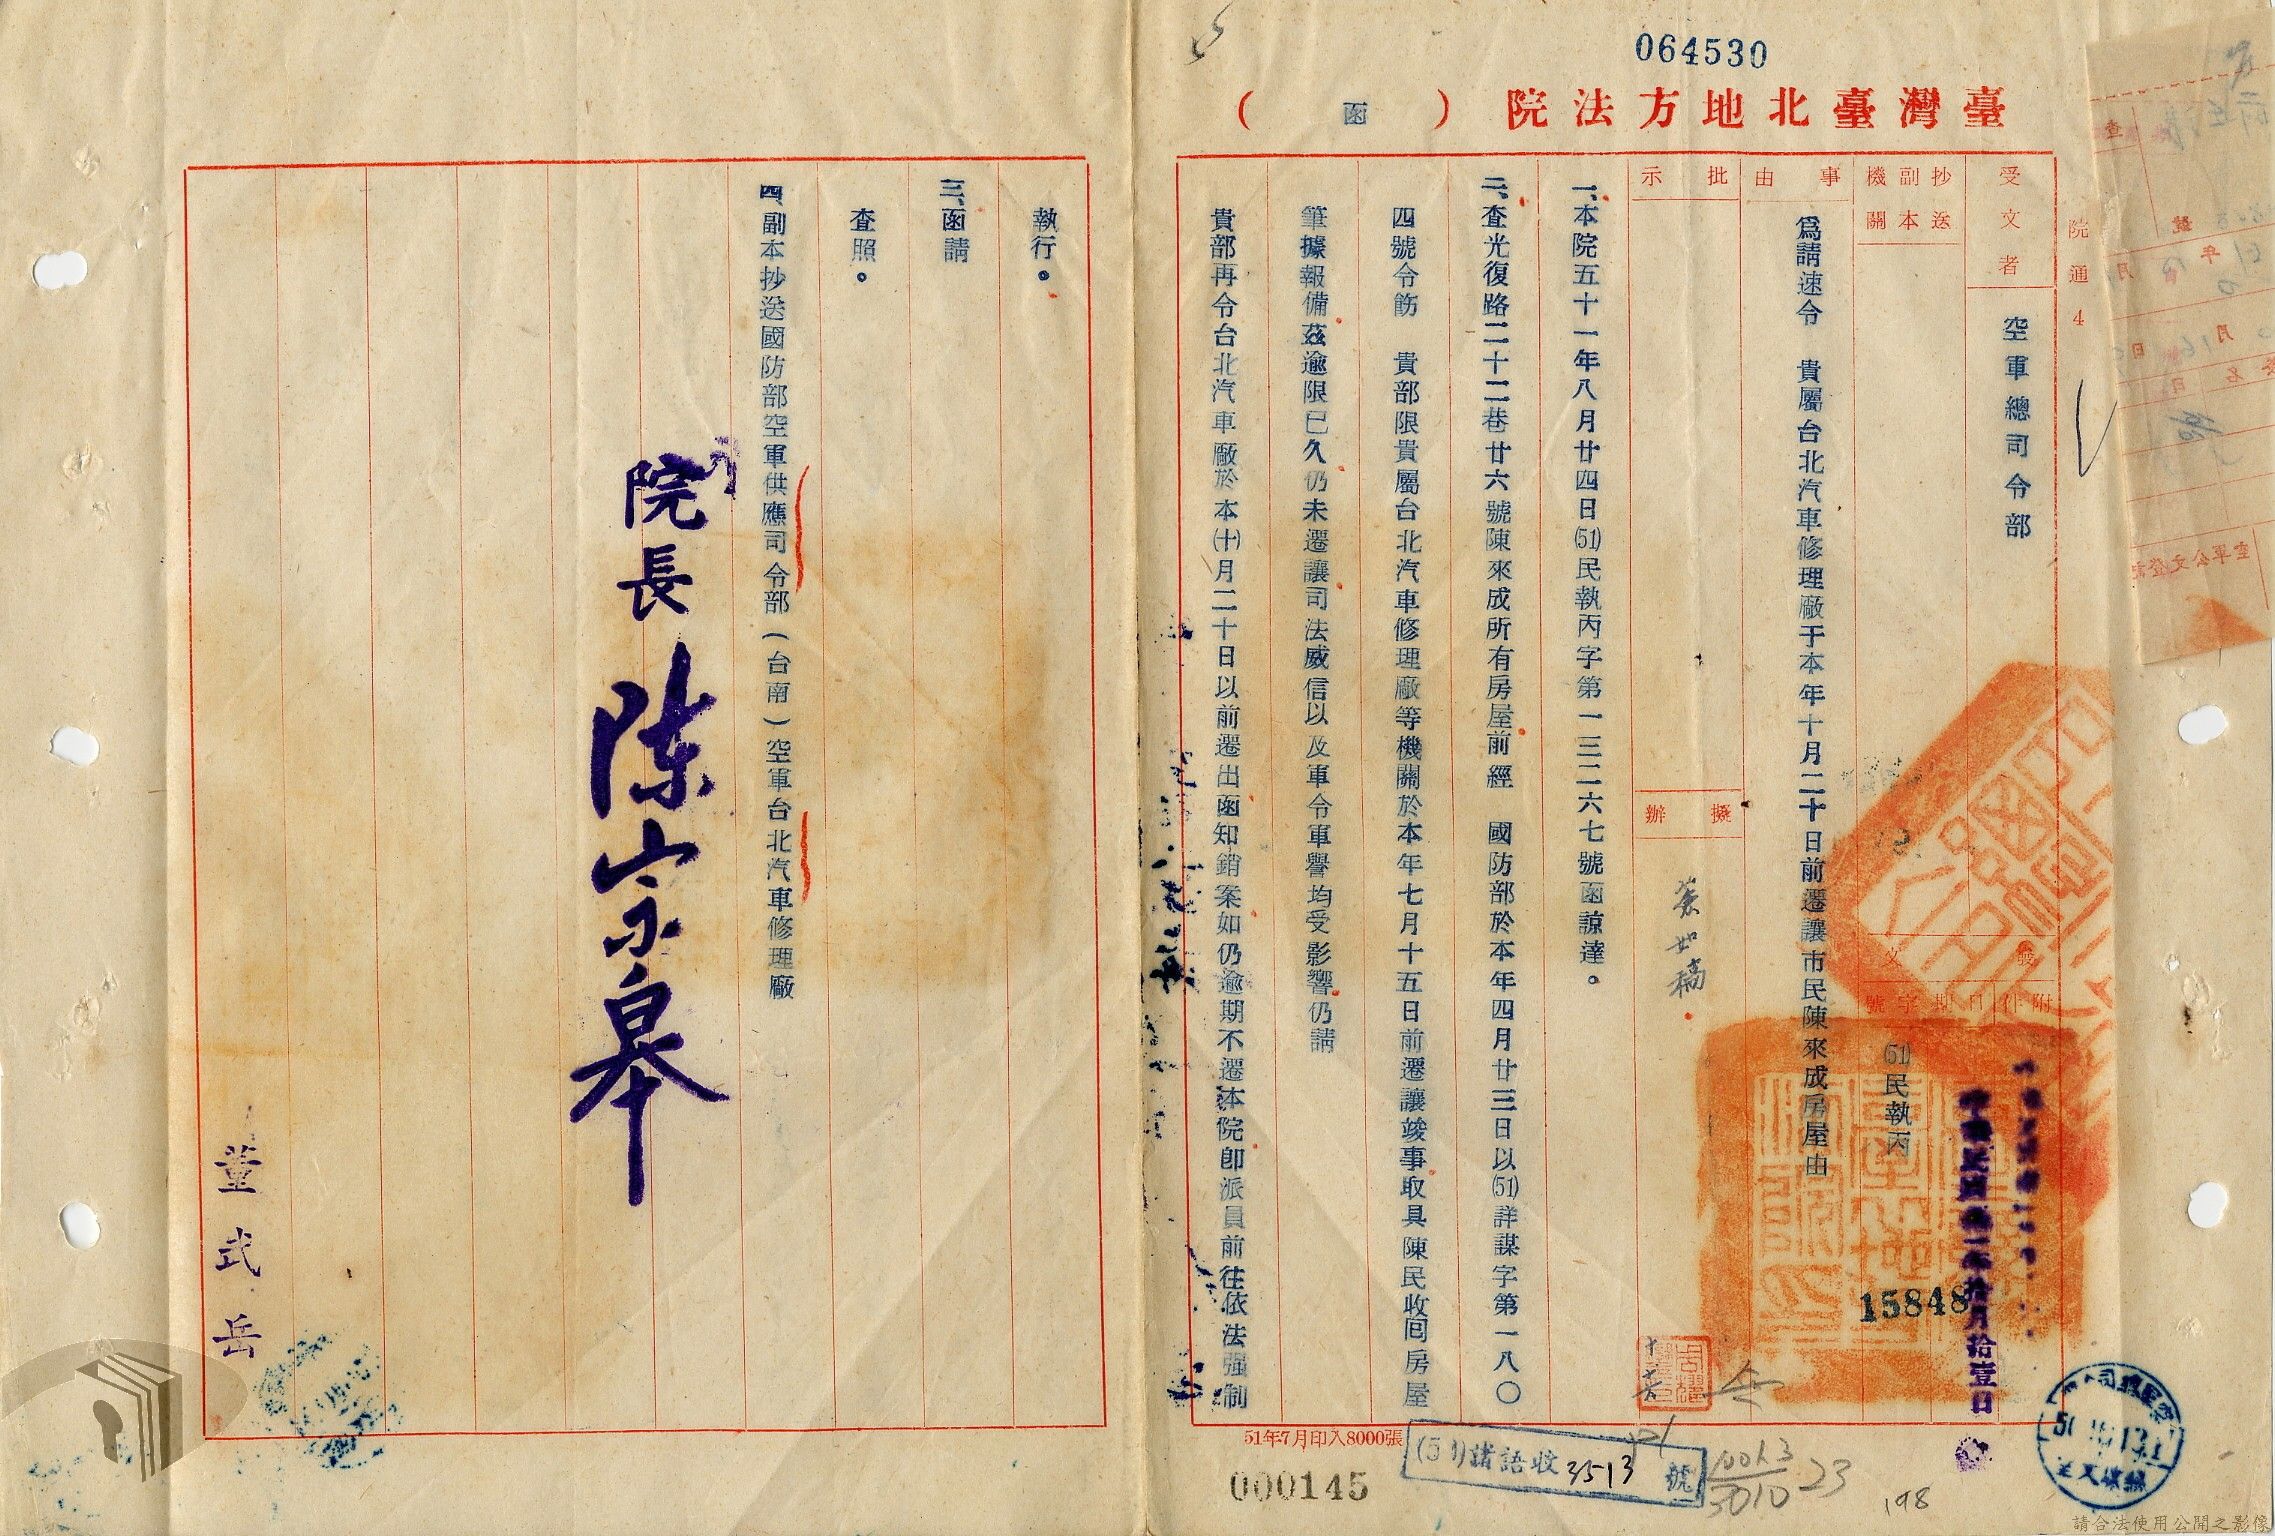 064530
臺灣臺北地方法院（函）
院通4
受文者
空軍總司令部
抄送副本機關
發文
附件
日期
字號
中華民國伍十一年拾月拾壹日
(51)民執丙
15848
事由
為請速令　貴屬台北汽車修理廠于本年十月二十日前遷讓市民陳來成房屋由
批示
擬辦
簽如稿
一、本院五十一年八月廿四日(51)民執丙字第一三二六七號函諒達。
二、查光復路二十二巷廿六號陳來成所有房屋前經　國防部於本年四月廿三日以(51)詳謀字第一八〇
四號令飭　貴部限貴屬台北汽車修理廠等機關於本年七月十五日前遷讓竣事取具陳民收囘房屋
筆據報備茲逾限已久仍未遷讓司法威信以及軍令軍譽均受影響仍請
貴部再令台北汽車廠於本(十)月二十日以前遷出函知銷案如仍逾期不遷本院即派員前往依法强制
執行。
三、函請
查照。
四、副本抄送國防部空軍供應司令部(台南)空軍台北汽車修理廠
院長 陳宗皋
董武岳
51年7月印入8000張
000145
(51)諸語收3513號
10013
3010
23
198
空軍公文登記
請合法使用公開之影像